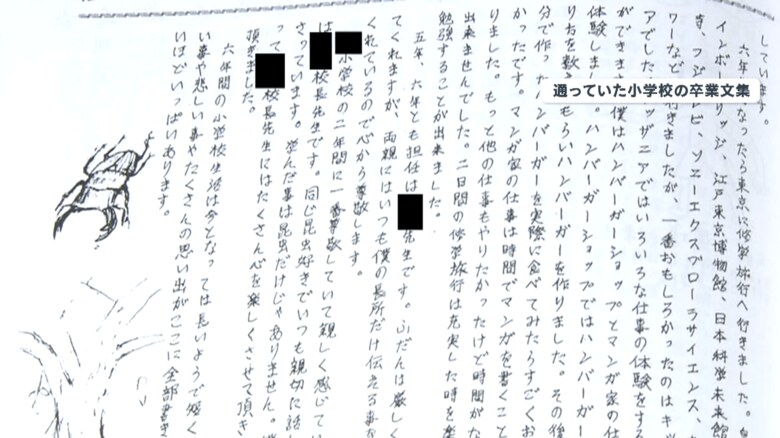 しています。
六年になったら東京に修学旅行へ行きました。
インボーブリッジ、江戸東京博物館、日本科学未来館
寺、フジテレビ、ソニーエクスプローラサイエンス、
ワーなど行きましたが、一番おもしろかったのはキッ
アでした。キッザニアではいろいろな仕事の体験をする
ができます。僕はハンバーガーショップとマンガ家の仕
体験しました。ハンバーガーショップではハンバーガー
り方を教えてもらいハンバーガーを作りました。その後
分で作ったハンバーガーを実際に食べてみたらすごくお
かったです。マンガ家の仕事は時間でマンガを書くこと
りました。もっと他の仕事もやりたかったけど時間がな
出来ませんでした。二日間の修学旅行は充実した時を
勉強することが出来ました。
五年、六年とも担任は先生です。ふだんは厳しく
てくれますが、両親にはいつも僕の長所だけ伝える事を
くれているので心から尊敬します。
小学校の二年間に一番尊敬していて親しく感じて
は校長先生です。同じ昆虫好きでいつも親切に話し
さっています。学んだ事は昆虫だけじゃありません。
って校長先生にはたくさん心を楽しくさせて頂き
頂きました。
六年間の小学校生活は今となっては長いようで短く
い事や悲しい事やたくさんの思い出がここに全部書き
いほどいっぱいあります。
通っていた小学校の卒業文集